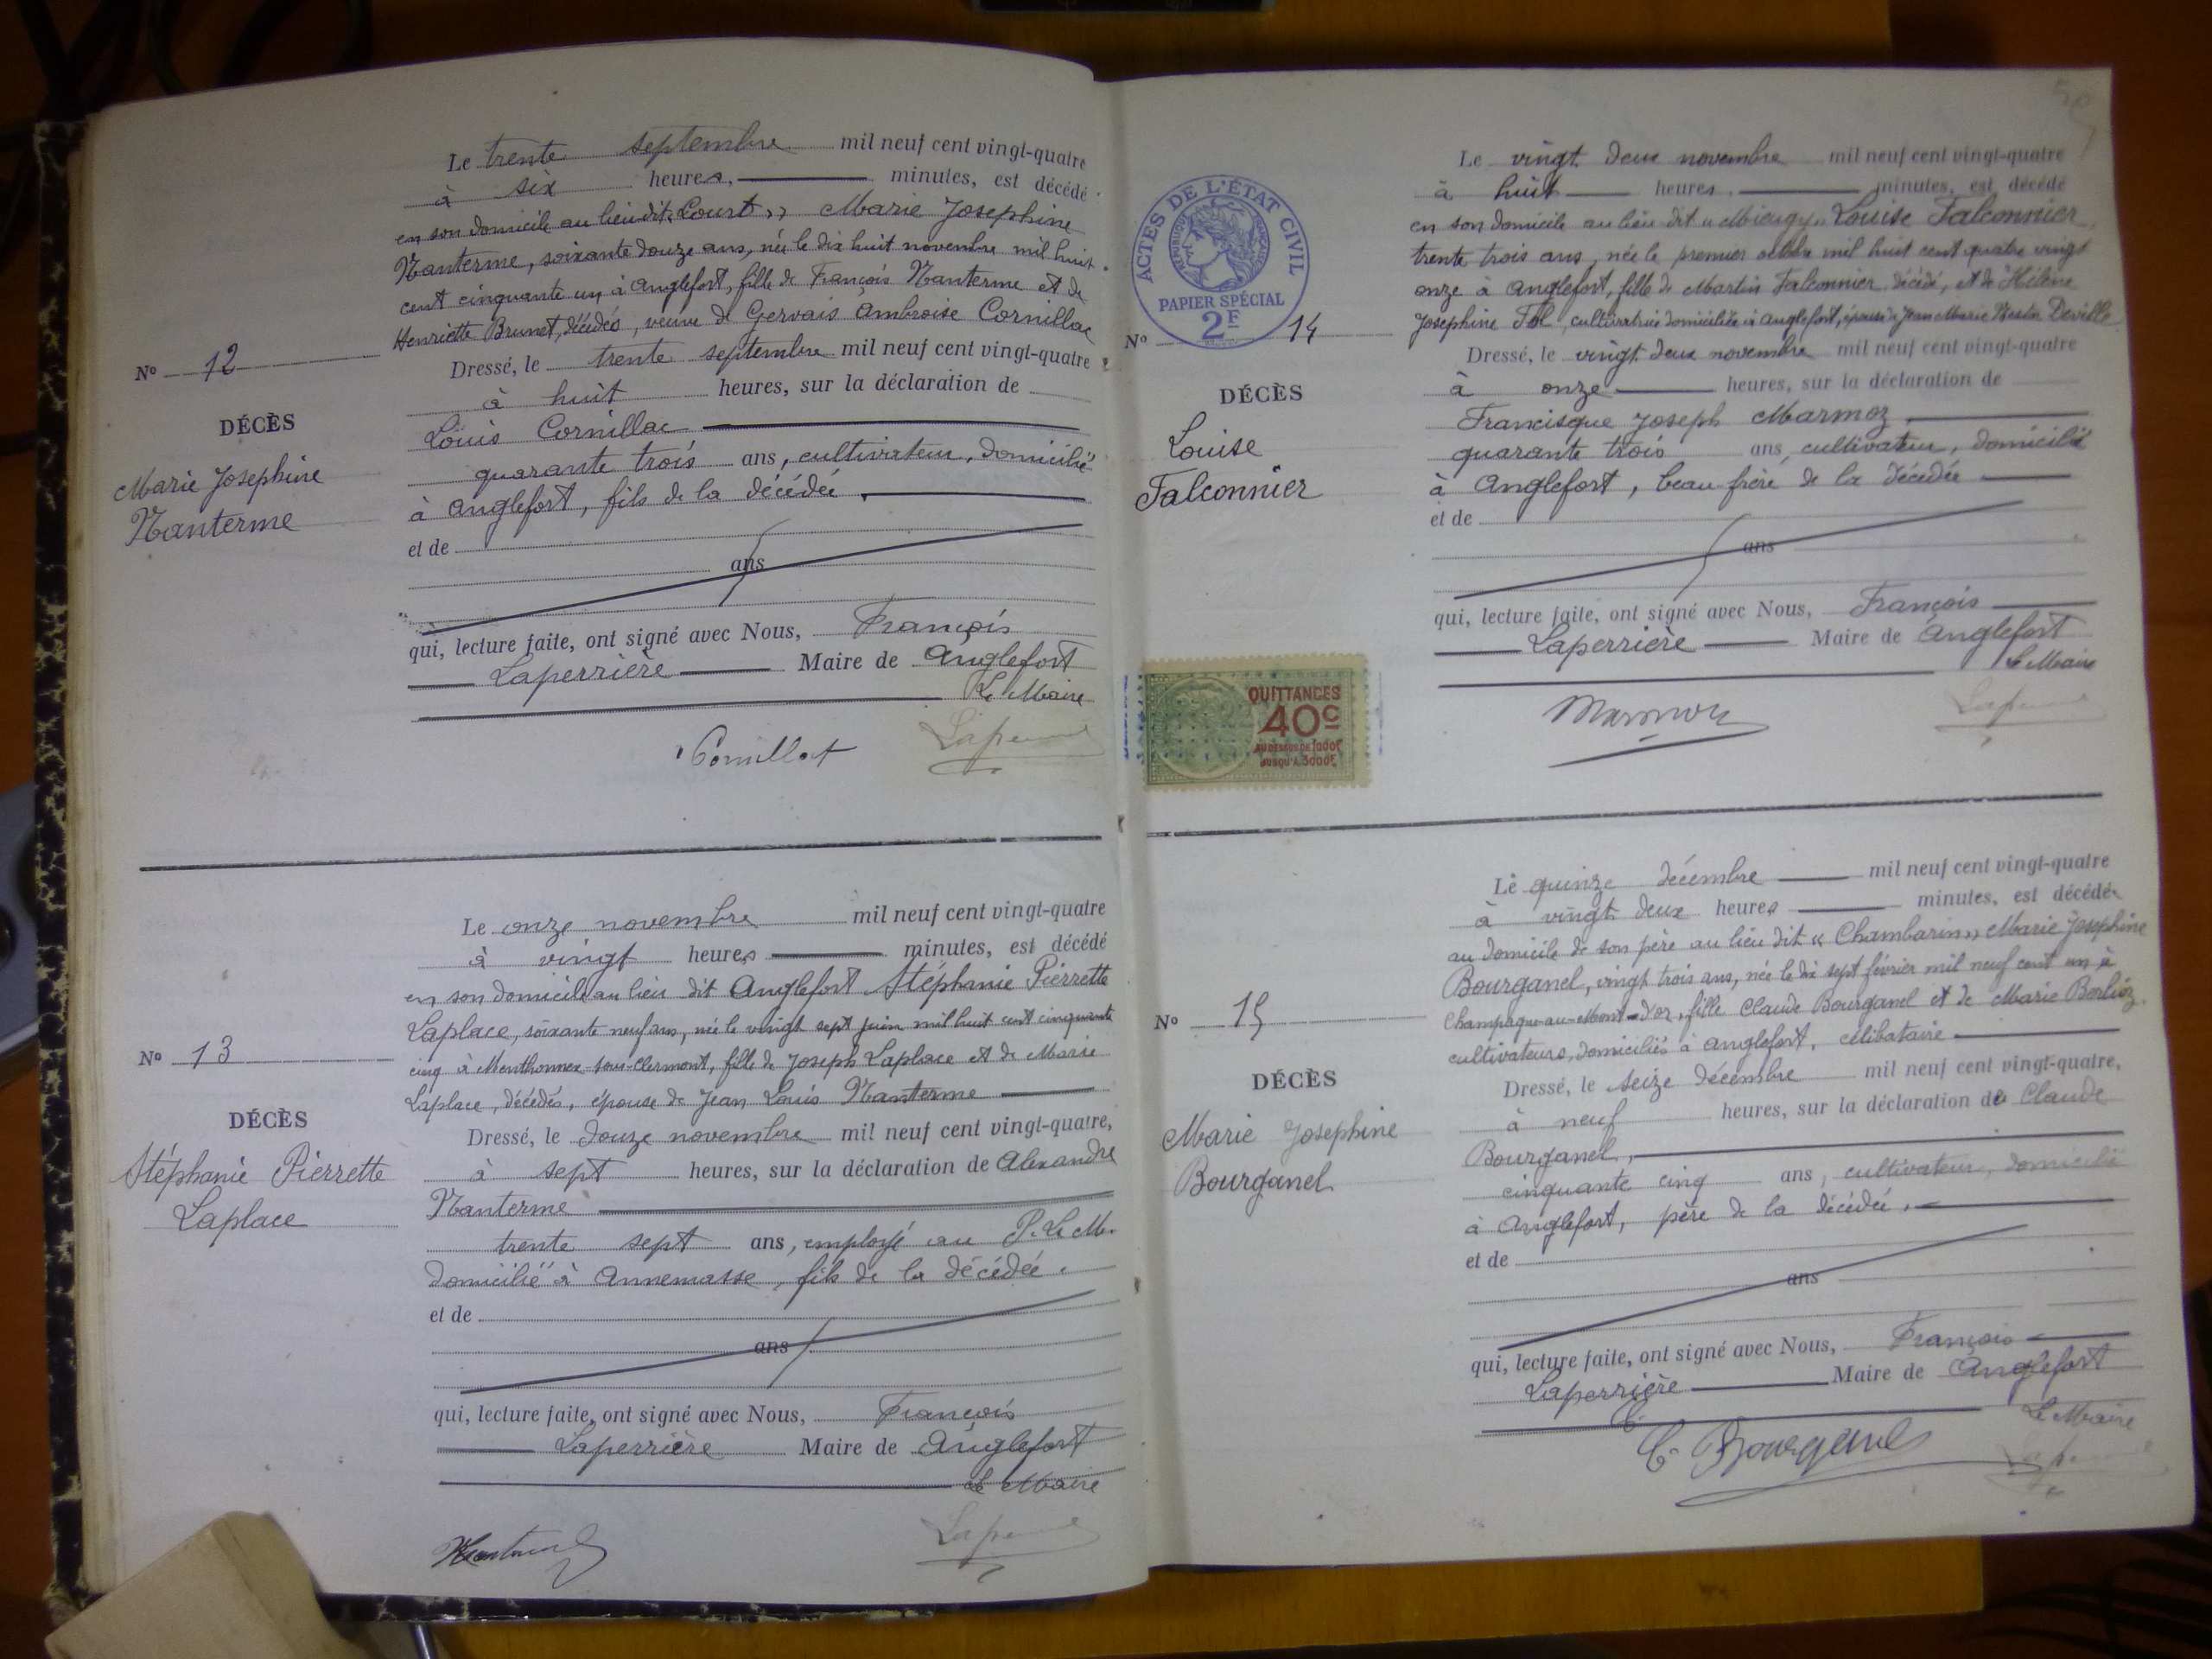 Le trente septembre mil neuf cent vingt-quatre
à six heures, minutes, est décédé
en son domicile au lieu dit « Lourt » Marie Josephine
Nanterme, soixante douze ans, née le dix huit novembre mil huit
cent cinquante un à Anglefort, fille de François Nanterme et de
Henriette Brunet, décédés, veuve de Gervais Ambroise Cornillac
Nº 12
DÉCÈS
Marie Josephine
Nanterme
Dressé, le trente septembre mil neuf cent vingt-quatre
à huit heures, sur la déclaration de
Louis Cornillac
quarante trois ans, cultivateur, domicilié
à Anglefort, fils de la décédée,
et de
ans
qui, lecture faite, ont signé avec Nous, François
Laperrière Maire de Anglefort
Le Maire
Le onze novembre mil neuf cent vingt-quatre
à vingt heures minutes, est décédé
en son domicile au lieu dit Anglefort Stéphanie Pierrette
Laplace, soixante neuf ans, née le vingt sept juin mil huit cent cinquante
cinq à Menthonnex-sous-Clermont, fille de Joseph Laplace et de Marie
Laplace, décédés, épouse de Jean Louis Nanterme
Nº 13
DÉCÈS
Stéphanie Pierrette
Laplace
Dressé, le douze novembre mil neuf cent vingt-quatre,
à sept heures, sur la déclaration de Alexandre
Nanterme
trente sept ans, employé au P.L.M.
domicilié à Annemasse, fils de la décédée.
et de
ans
qui, lecture faite, ont signé avec Nous, François
Laperrière Maire de Anglefort
Le Maire
Le vingt deux novembre mil neuf cent vingt-quatre
à huit heures minutes, est décédé
en son domicile au lieu dit « Mieugy » Louise Falconnier,
trente trois ans, née le premier octobre mil huit cent quatre vingt
onze à Anglefort, fille de Martin Falconnier décédé, et de Hélène
Josephine Fol, cultivatrice domiciliée à Anglefort, épouse de Jean Marie Deville
ACTES DE L'ÉTAT CIVIL
RÉPUBLIQUE FRANÇAISE
PAPIER SPÉCIAL
2F
Nº 14
DÉCÈS
Louise
Falconnier
Dressé, le vingt deux novembre mil neuf cent vingt-quatre
à onze heures, sur la déclaration de
Francisque Joseph Marmoz
quarante trois ans, cultivateur, domicilié
à Anglefort, beau frère de la décédée
et de
ans
qui, lecture faite, ont signé avec Nous, François
Laperrière Maire de Anglefort
Le Maire
QUITTANCES
40c
AU DESSUS DE 1000F
JUSQU'A 3000F
Le quinze décembre mil neuf cent vingt-quatre
à vingt deux heures minutes, est décédé
au domicile de son père au lieu dit « Chambarin » Marie Josephine
Bourganel, vingt trois ans, née le dix sept février mil neuf cent un à
Champagne-au-Mont-d'or, fille Claude Bourganel et de Marie Berlioz
cultivateurs, domiciliés à Anglefort, célibataire
Nº 15
DÉCÈS
Marie Josephine
Bourganel
Dressé, le seize décembre mil neuf cent vingt-quatre,
à neuf heures, sur la déclaration de Claude
Bourganel,
cinquante cinq ans, cultivateur, domicilié
à Anglefort, père de la décédée,
et de
ans
qui, lecture faite, ont signé avec Nous, François
Laperrière Maire de Anglefort
Le Maire
C. Bourganel